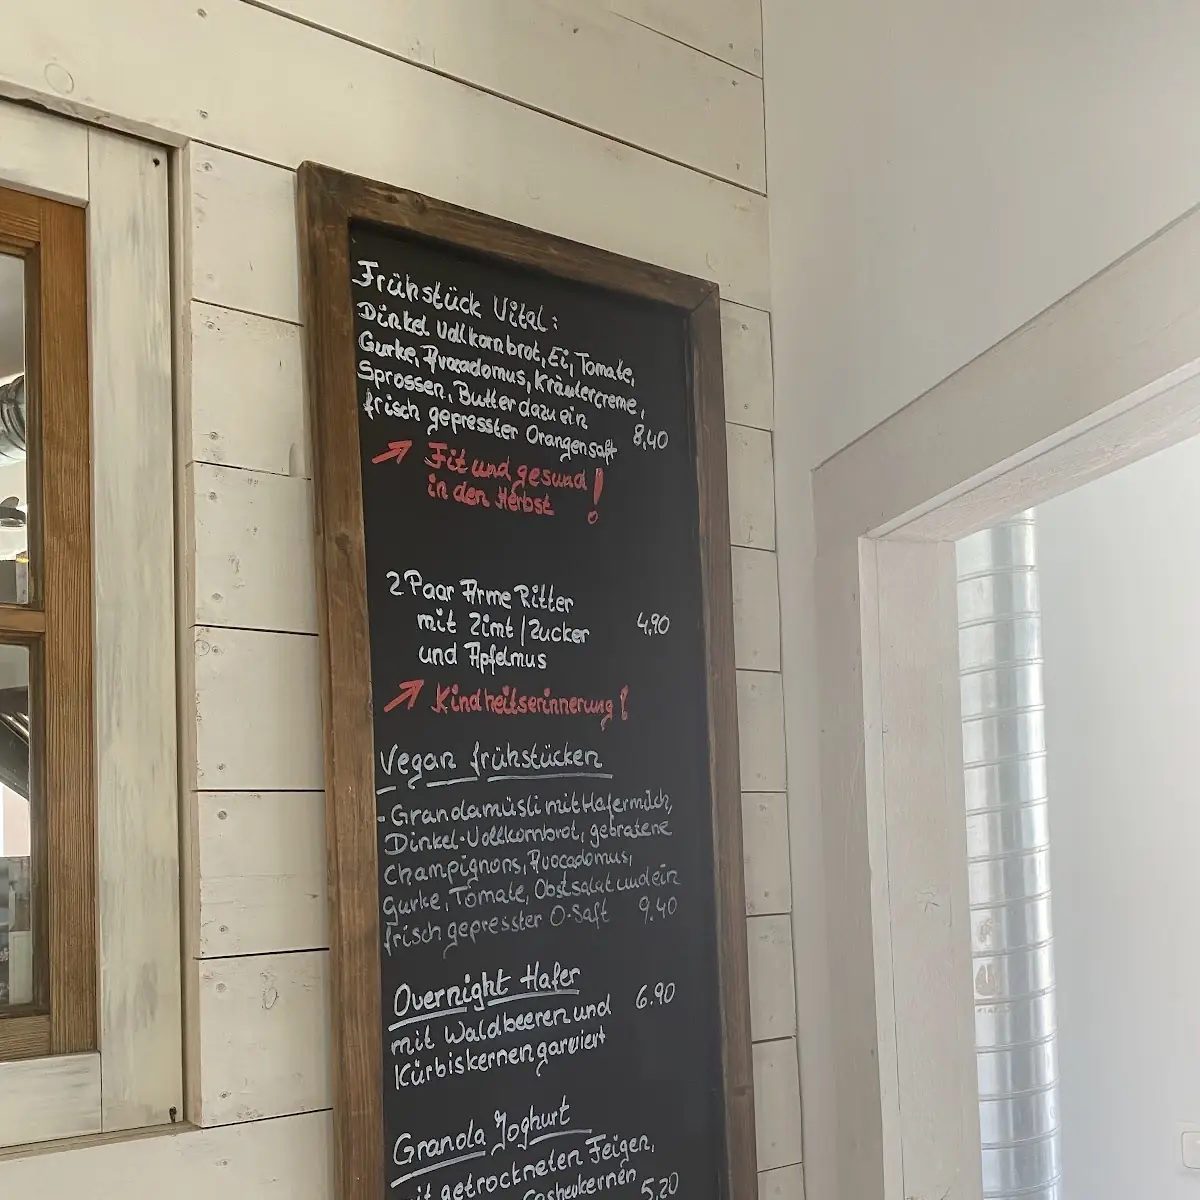 Frühstück Vital:
Dinkel Vollkornbrot, Ei, Tomate,
Gurke, Avocadomus, Kräutercreme,
Sprossen, Butter dazu ein
frisch gepresster Orangensaft 8,40
Fit und gesund
in den Herbst !
2 Paar Arme Ritter
mit Zimt / Zucker 4,90
und Apfelmus
Kindheitserinnerung !
Vegan frühstücken
- Granolamüsli mit Hafermilch,
Dinkel-Vollkornbrot, gebratene
Champignons, Avocadomus,
Gurke, Tomate, Obstsalat und ein
frisch gepresster O-Saft 9.40
Overnight Hafer
mit Waldbeeren und 6.90
Kürbiskernen garniert
Granola Joghurt
mit getrockneten Feigen,
5,20